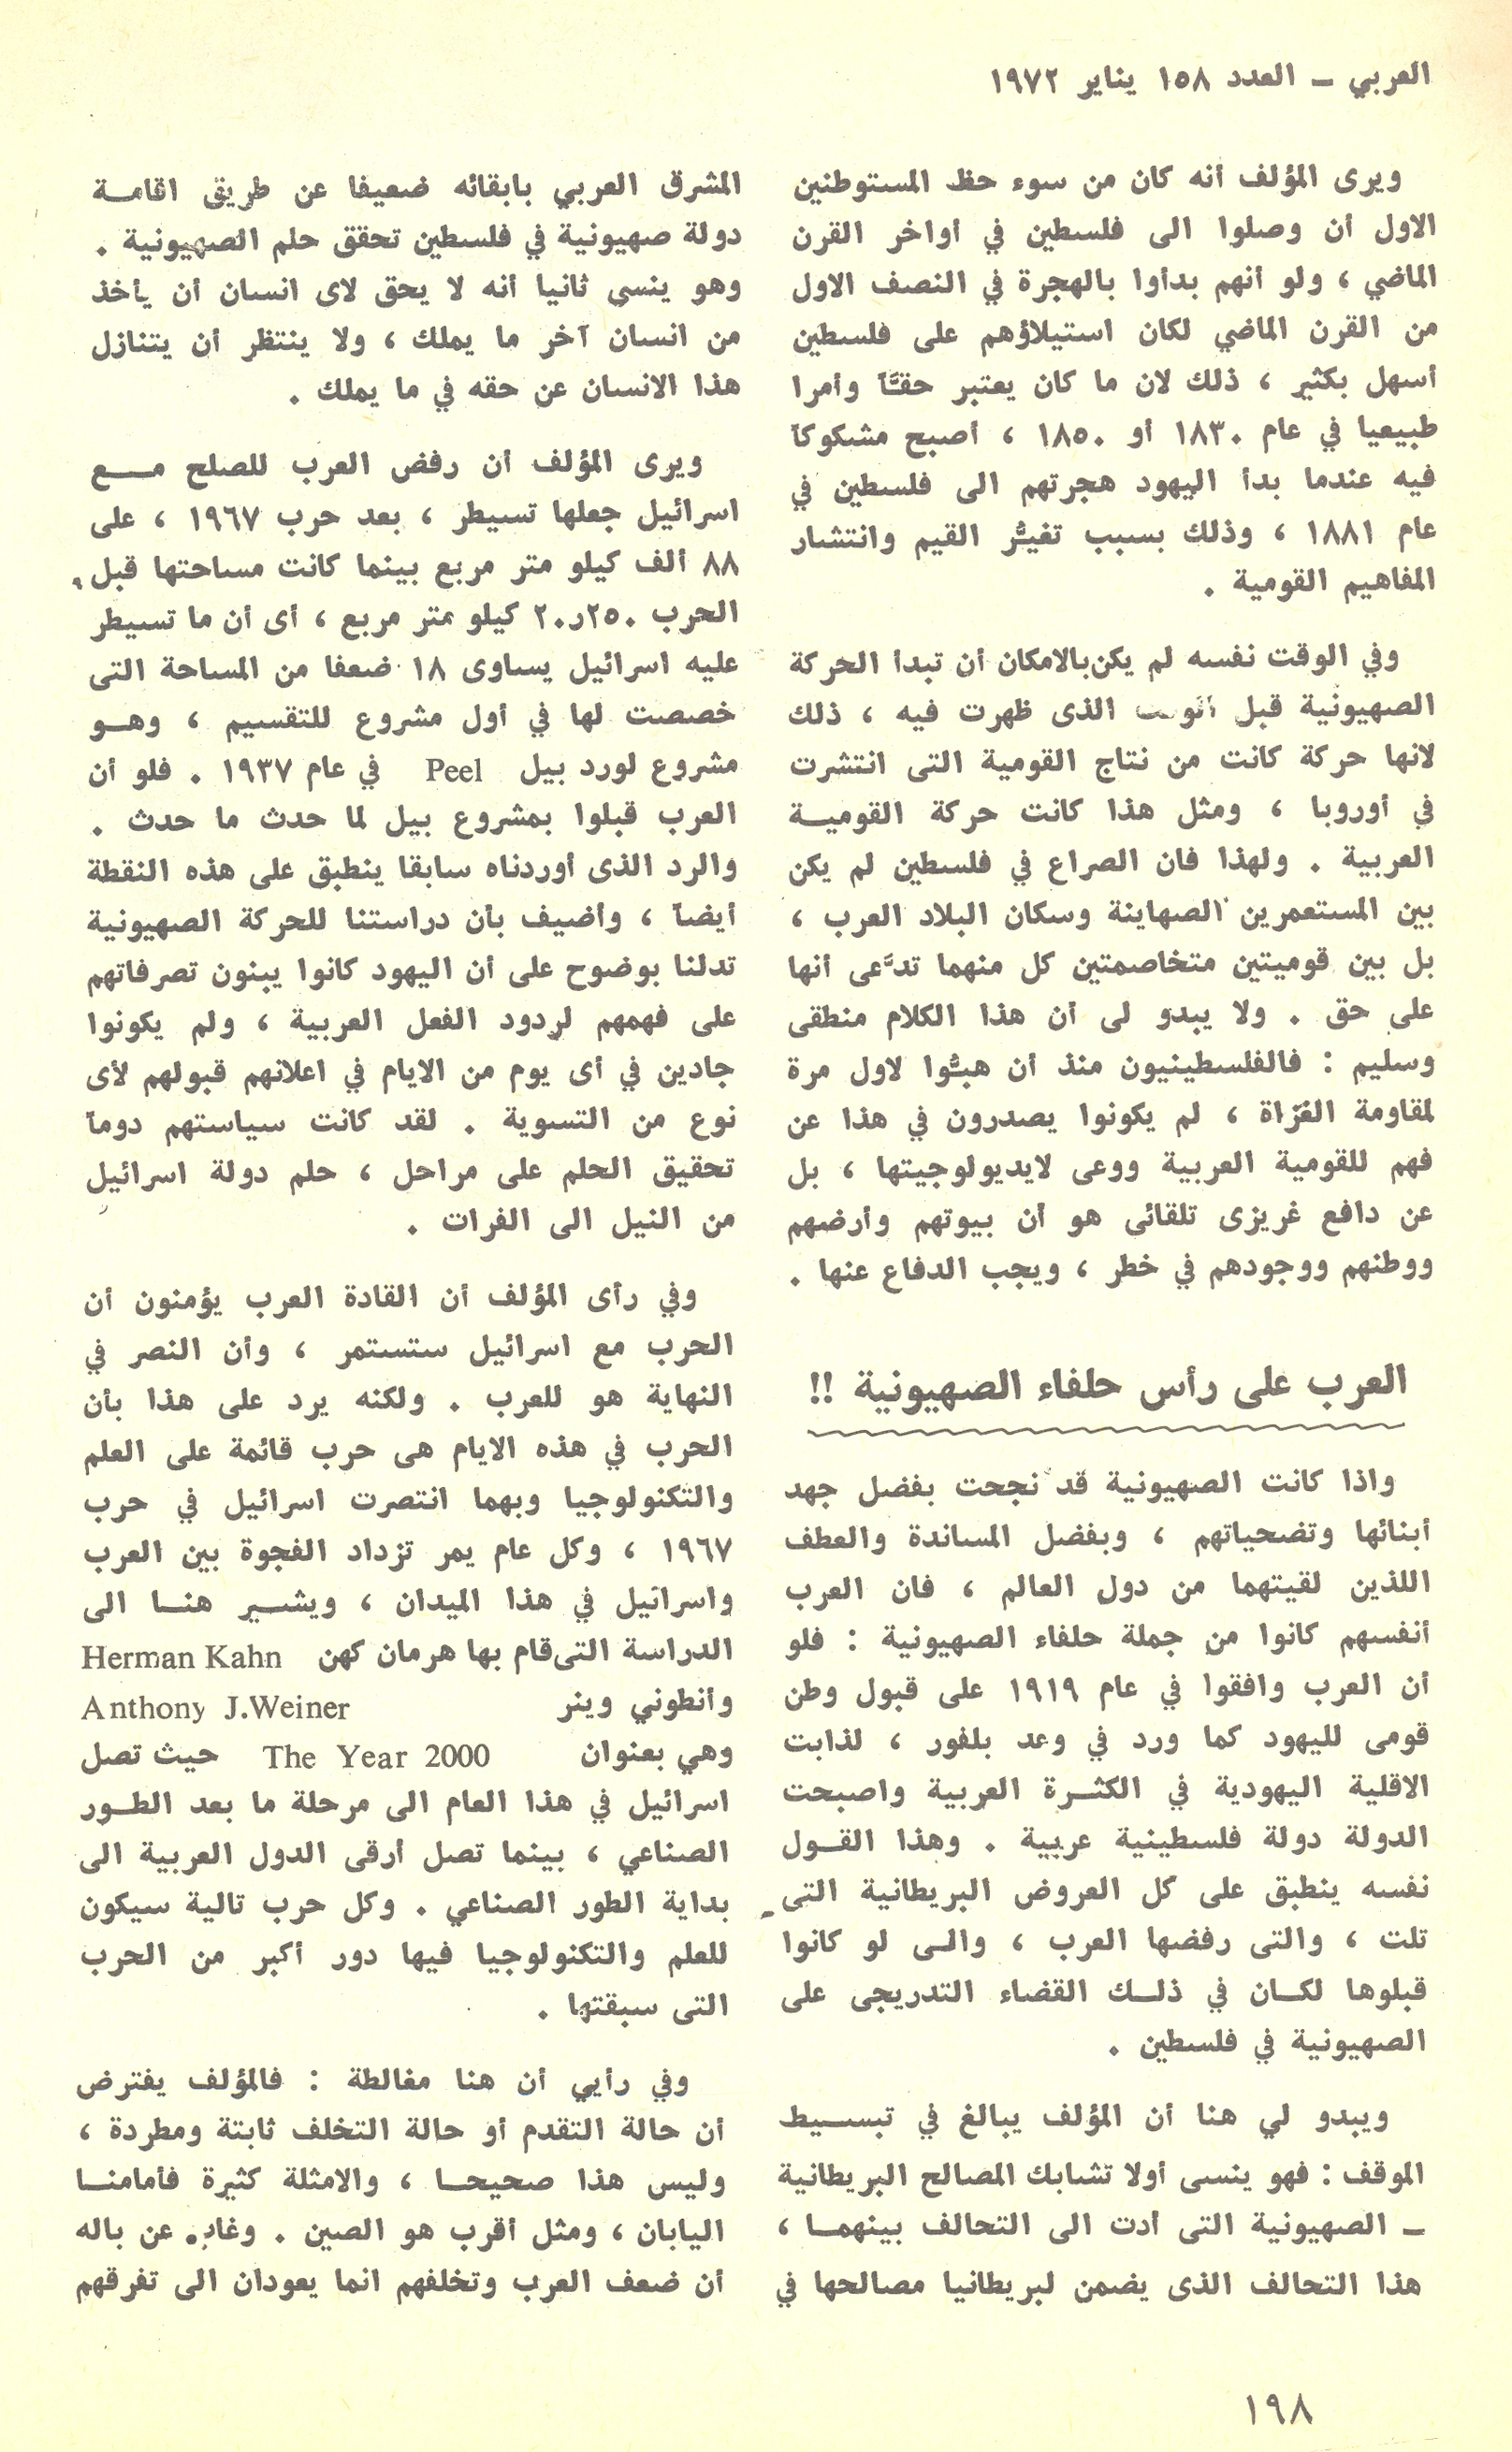 العربي ــ العدد ١٥٨ يناير ١٩٧٢
ويرى المؤلف أنه كان من سوء حظ المستوطنين
الاول أن وصلوا الى فلسطين في أواخر القرن
الماضي ، ولو أنهم بدأوا بالهجرة في النصف الاول
من القرن الماضي لكان استيلاؤهم على فلسطين
أسهل بكثير ، ذلك لان ما كان يعتبر حقـّاً وأمرا
طبيعيا في عام ١٨٣٠ أو ١٨٥٠ ، أصبح مشكوكاً
فيه عندما بدأ اليهود هجرتهم الى فلسطين في
عام ١٨٨١ ، وذلك بسبب تغيـُّر القيم وانتشار
المفاهيم القومية .
وفي الوقت نفسه لم يكن بالامكان أن تبدأ الحركة
الصهيونية قبل الذى ظهرت فيه ، ذلك
لانها حركة كانت من نتاج القومية التى انتشرت
في أوروبا ، ومثل هذا كانت حركة القوميـة
العربية . ولهذا فان الصراع في فلسطين لم يكن
بين المستعمرين الصهاينة وسكان البلاد العرب ،
بل بين قوميتين متخاصمتين كل منهما تدَّعى أنها
على حق . ولا يبدو لى أن هذا الكلام منطقى
وسليم : فالفلسطينيون منذ أن هبـُّوا لاول مرة
لمقاومة الغزاة ، لم يكونوا يصدرون في هذا عن
فهم للقومية العربية ووعى لايديولوجيتها ، بل
عن دافع غريزى تلقائى هو أن بيوتهم وأرضهم
ووطنهم ووجودهم في خطر ، ويجب الدفاع عنها .
العرب على رأس حلفاء الصهيونية !!
واذا كانت الصهيونية قد نجحت بفضل جهد
أبنائها وتضحياتهم ، وبفضل المساندة والعطف
اللذين لقيتهما من دول العالم ، فان العرب
أنفسهم كانوا من جملة حلفاء الصهيونية : فلو
أن العرب وافقوا في عام ١٩١٩ على قبول وطن
قومى لليهود كما ورد في وعد بلفور ، لذابت
الاقلية اليهودية في الكثـرة العربية واصبحت
الدولة دولة فلسطينية عربية . وهذا القـول
نفسه ينطبق على كل العروض البريطانية التى
تلت ، والتى رفضها العرب ، والـى لو كانوا
قبلوها لكـان في ذلـك القضاء التدريجى على
الصهيونية في فلسطين .
ويبدو لي هنا أن المؤلف يبالغ في تبسـيط
الموقف : فهو ينسى أولا تشابك المصالح البريطانية
ــ الصهيونية التى أدت الى التحالف بينهمـا ،
هذا التحالف الذى يضمن لبريطانيا مصالحها في
المشرق العربي بابقائه ضعيفا عن طريق اقامـة
دولة صهيونية في فلسطين تحقق حلم الصهيونية .
وهو ينسى ثانيا أنه لا يحق لاى انسان أن يأخذ
من انسان آخر ما يملك ، ولا ينتظر أن يتنازل
هذا الانسان عن حقه في ما يملك .
ويرى المؤلف أن رفض العرب للصلح مــع
اسرائيل جعلها تسيطر ، بعد حرب ١٩٦٧ ، على
٨٨ ألف كيلو متر مربع بينما كانت مساحتها قبل
الحرب ٢٠ر٢٥٠ كيلو متر مربع ، أى أن ما تسيطر
عليه اسرائيل يساوى ١٨ ضعفا من المساحة التى
خصصت لها في أول مشروع للتقسيم ، وهـو
مشروع لورد بيل Peel في عام ١٩٣٧ . فلو أن
العرب قبلوا بمشروع بيل لما حدث ما حدث .
والرد الذى أوردناه سابقا ينطبق على هذه النقطة
أيضاً ، وأضيف بأن دراستنا للحركة الصهيونية
تدلنا بوضوح على أن اليهود كانوا يبنون تصرفاتهم
على فهمهم لردود الفعل العربية ، ولم يكونوا
جادين في أى يوم من الايام في اعلانهم قبولهم لأى
نوع من التسوية . لقد كانت سياستهم دوماً
تحقيق الحلم على مراحل ، حلم دولة اسرائيل
من النيل الى الفرات .
وفي رأى المؤلف أن القادة العرب يؤمنون أن
الحرب مع اسرائيل ستستمر ، وأن النصر في
النهاية هو للعرب . ولكنه يرد على هذا بأن
الحرب في هذه الايام هى حرب قائمة على العلم
والتكنولوجيا وبهما انتصرت اسرائيل في حرب
١٩٦٧ ، وكل عام يمر تزداد الفجوة بين العرب
واسرائيل في هذا الميدان ، ويشـير هنـا الى
الدراسة التى قام بها هرمان كهن Herman Kahn
وأنطوني وينر Anthony J.Weiner
وهي بعنوان The Year 2000 حيث تصل
اسرائيل في هذا العام الى مرحلة ما بعد الطـور
الصناعي ، بينما تصل أرقى الدول العربية الى
بداية الطور الصناعي . وكل حرب تالية سيكون
للعلم والتكنولوجيا فيها دور أكبر من الحرب
التى سبقتها .
وفي رأيي أن هنا مغالطة : فالمؤلف يفترض
أن حالة التقدم أو حالة التخلف ثابتة ومطردة ،
وليس هذا صحيحـا ، والامثلة كثيرة فأمامنـا
اليابان ، ومثل أقرب هو الصين . وغاب عن باله
أن ضعف العرب وتخلفهم انما يعودان الى تفرقهم
١٩٨